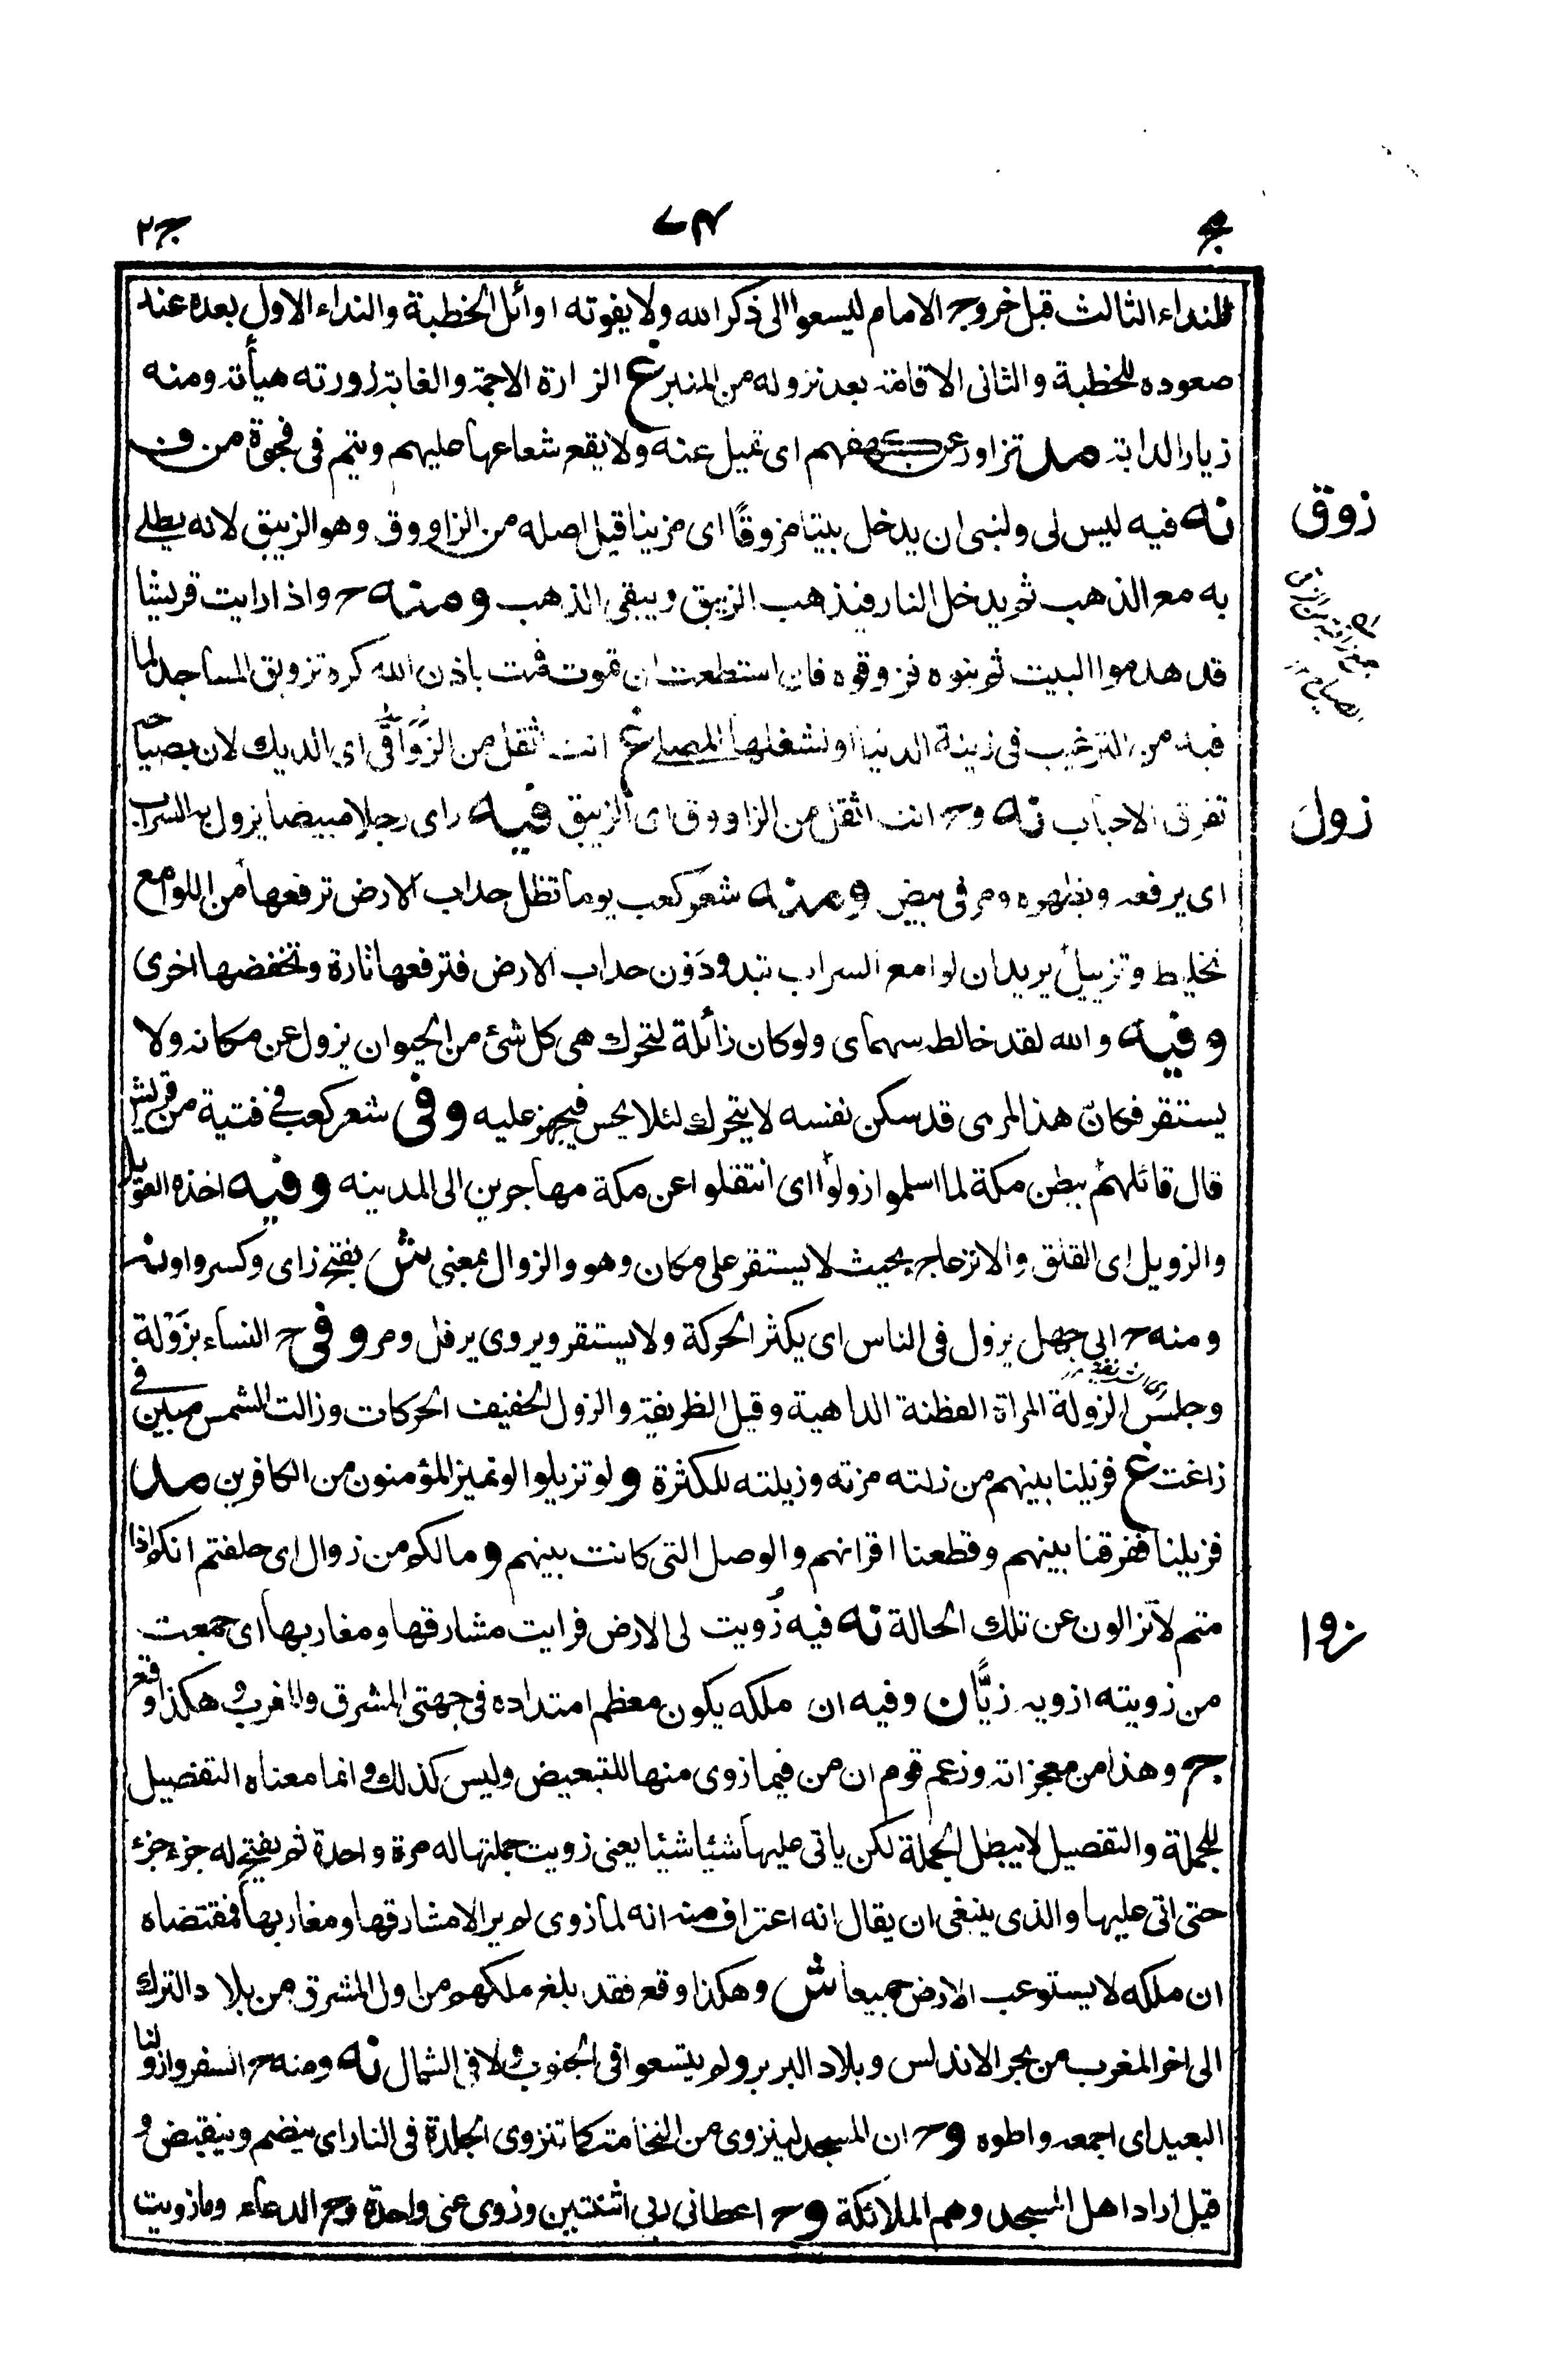 ج ٧٤ ج٢
فالنداء الثالث قبل خروج الامام ليسعوا الى ذكر الله ولا يفوته اوائل الخطبة والنداء الاول بعده عند
صعوده للخطبة والثانى الاقامة بعد نزوله من المنبر غ الزارة الاجمة والغابة زورته هيأته ومنه
زيار الدابة مد تزاور عن كهفهم اى تميل عنه ولا يقع شعاعها عليهم وتيم فى فجوة من ف
زوق
نه فيه ليس لى ولنبى ان يدخل بيتا مزوقًا اى مزينا قيل اصله من الزاووق وهو الزيبق لانه يطلى
به مع الذهب ثم يدخل النار فيذهب الزيبق ويبقى الذهب ومنه ح واذا رايت قريشا
قد هدموا البيت ثم بنوه فزوقوه فان استطعت ان تموت فمت باذن الله كره تزويق المساجد لما
فيه من الترغيب فى زينة الدنيا اولشغلها المصلى غ انت اثقل من الزواقى اى الديك لان بصياحه
زول
تفرق الاحباب نه وح انت اثقل من الزاووق اى الزيبق فيه راى رجلا مبيضا يزول به السراب
اى يرفعه ويظهره ومر فى بيض ومنه شعر كعب يوما تظل حداب الارض ترفعها من اللوامع
تخليط وتزييل يريد ان لوامع السراب تبدو دون حداب الارض فترفعها تارة وتخفضها اخرى
وفيه والله لقد خالطه سهماى ولو كان زائلة لتحرك هى كل شئ من الحيوان يزول عن مكانه ولا
يستقر فكان هذا المرمى قد سكن نفسه لا يتحرك لئلا يحس فيجهز عليه وفى شعر كعب فى فتية من قريش
قال قائلهم ببطن مكة لما اسلموا زولوا اى انتقلوا عن مكة مهاجرين الى المدينه وفيه اخذه العويل
والزويل اى القلق والانزعاج بحيث لا يستقر على مكان وهو والزوال بمعنى ش بفتح زاى وكسر واو نه
ومنه ح ابى جهل يزول فى الناس اى يكثر الحركة ولا يستقر ويروى يرفل ومر وفى ح النساء بزَوْلة
وجلس الزولة المراة الفطنة الداهية وقيل الظريفة والزول الخفيف الحركات وزالت الشمس مبين فى
زاغت غ فزيلنا بينهم من زلته مزته وزيلته للكثرة ولو تزيلوا لو تميز المؤمنون من الكافرين مد
فزيلنا ففرقنا بينهم وقطعنا اقرانهم والوصل التى كانت بينهم ومالكم من زوال اى حلفتم انكم اذا
زوا
متم لا تزالون عن تلك الحالة نه فيه زُويت لى الارض فرايت مشارقها ومغاربها اى جمعت
من زويته ازويه زيًّا ن وفيه ان ملكه يكون معظم امتداده فى جهتى المشرق والمغرب و هكذا وقع
ج وهذا من معجزاته وزعم قوم ان من فيما زوى منها للتبعيض وليس كذلك وانما معناه التفصيل
للجملة والتفصيل لا يبطل الجملة لكن ياتى عليها شيئا شيئا يعنى زويت جملتها له مرة واحدة ثم يفتح له جزء جزء
حتى اتى عليها والذى ينبغى ان يقال انه اعتراف منه انه لما زوى لم ير الا مشارقها ومغاربها فمقتضاه
ان ملكه لا يستوعب الارض جميعا ش وهكذا وقع فقد بلغ ملكهم من اول المشرق من بلاد الترك
الى اخر المغرب من بحر الاندلس وبلاد البربر ولم يتسعوا فى الجنوب ولا فى الشمال نه ومنه ح السفر وازو لنا
البعيد اى اجمعه واطوه وح ان المسجد لينزوى من النخامة كما تنزوى الجلدة فى النار اى ينضم وينقبض و
قيل اراد اهل المسجد وهم الملائكة وح اعطانى ربى اثنتين وزوى عنى واحدة وح الدعاء وما زويت